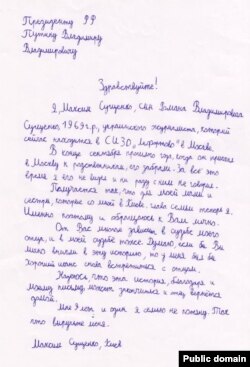 Президенту РФ
Путину Владимиру
Владимировичу
Здравствуйте!
Я, Максим Сущенко, сын Романа Владимировича
Сущенко, 1969 г.р., украинского журналиста, который
сейчас находится в СИЗО „Лефортово" в Москве.
В конце сентября прошлого года, когда он приехал
в Москву к родственникам, его забрали. За все это
время я его не видел и ни разу с ним не говорил.
Получается так, что для моей мамы и
сестры, которые со мной в Киеве, глава семьи теперь я.
Именно поэтому я обращаюсь к Вам лично.
От Вас многое зависит в судьбе моего
отца, и в моей судьбе тоже. Думаю, если бы Вы
лично вникли в эту историю, то у меня был бы
хороший шанс снова встретиться с отцом.
Надеюсь что эта история, благодаря и
моему письму, может закончиться и папу вернётся
домой.
Мне 9 лет и один я семью не потяну. Так
что выручите меня.
Максим Сущенко, Киев
Public domain